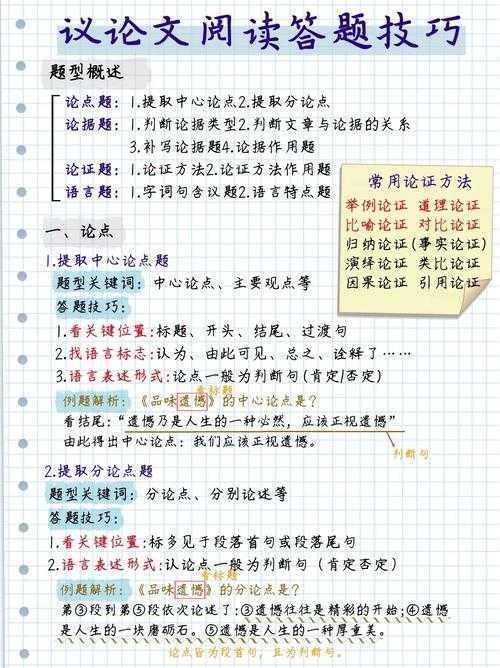 议论文阅读答题技巧
题型概述
论点题：1.提取中心论点2.提取分论点
论据题：1.判断论据类型2.判断文章与论据的关系
3.补写论据题4.论据作用题
论证题：1.论证方法2.论证方法作用题
语言题：1.字词句含议题2.语言特点题
常用论证方法
举例论证 道理论证
比喻论证 对比论证
归纳论证(事实论证)
演绎论证 类比论证
因果论证 引用论证
一、论点
1.提取中心论点题
题型关键词：中心论点、主要观点等
答题技巧：
1.看关键位置:标题、开头、结尾、过渡句
2.找语言标志:认为、由此可见、总之、诠释了……
3.语言表述形式:论点一般为判断句(肯定/否定)
看标题
例题解析：《品味遗憾》的中心论点是？
看结尾：“遗憾乃是人生的一种必然，应该正视遗憾”
由此得出中心论点：我们应该正视遗憾。
判断句
2.提取分论点题
题型关键词：分论点、分别论述等
答题技巧：
1.看关键位置:标多见于段落首句或段落尾句
2.语言表述形式:认论点一般为判断句（肯定否定）
看标题
例题解析：《品味遗憾》的分论点是？
第③段到第⑤段依次论述了：③遗憾往往是精彩的开始;④遗憾
是人生的一块磨砺石。⑤遗憾是人生的一种厚重美。
论点皆为段首句，且为判断句。